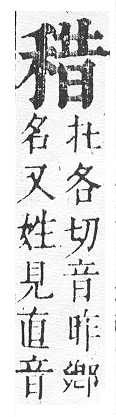 稓
扗各切音昨鄉
名又姓見直音